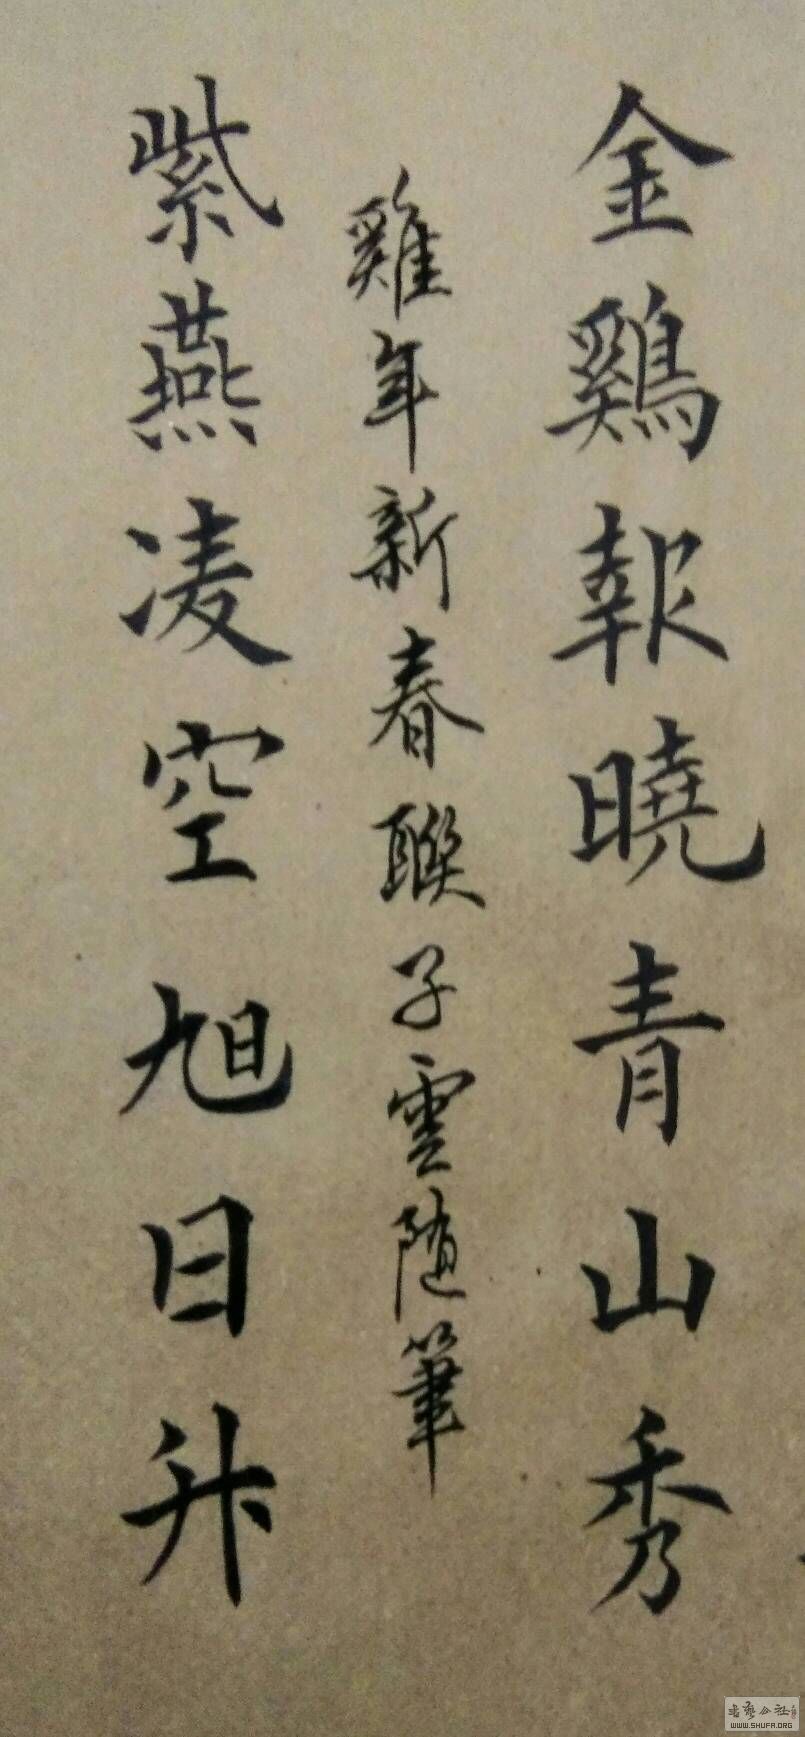 金鷄報曉青山秀
雞年新春聯子雲随筆
紫燕凌空旭日升
WWW.SHUFA.ORG